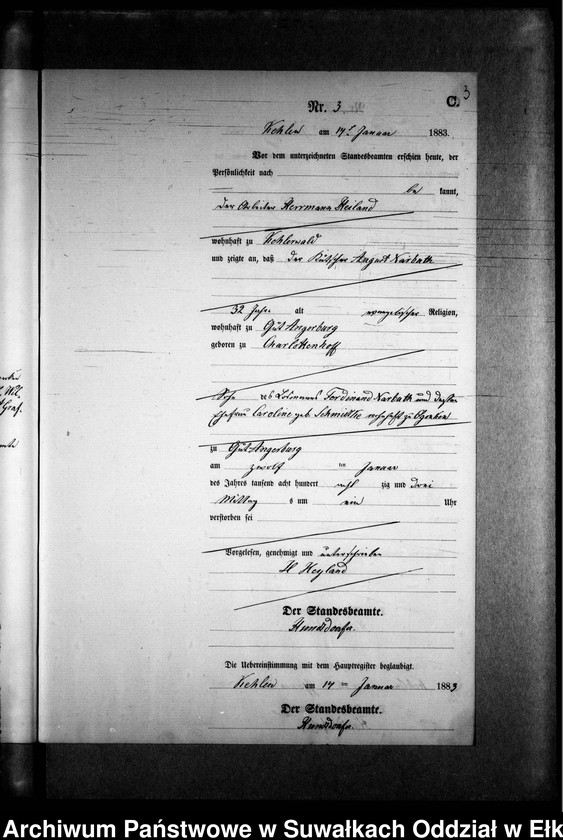 3
Nr. 3
C.
Kehlen am 14t Januar 1883.
Vor dem unterzeichneten Standesbeamten erschien heute, der
Persönlichkeit nach
be kannt,
der Arbeiter Herrmann Heiland
wohnhaft zu Kehlerwald
und zeigte an, daß der Kutscher August Narbuth
32 Jahre alt evangelischer Religion,
wohnhaft zu Gut Angerburg
geboren zu Charlottenhoff
Sohn des Ferdinand Narbuth und dessen
Ehefrau Caroline geb Schmidtke wohnhaft zu
zu Gut Angerburg
am zwölf ten Januar
des Jahres tausend acht hundert acht zig und drei
Mittag s um ein Uhr
verstorben sei
Vorgelesen, genehmigt und unterschrieben
H Heyland
Der Standesbeamte.
Die Uebereinstimmung mit dem Hauptregister beglaubigt.
Kehlen am 14 ten Januar 1883
Der Standesbeamte.
Archiwum Państwowe w Suwałkach Oddział w Ełk